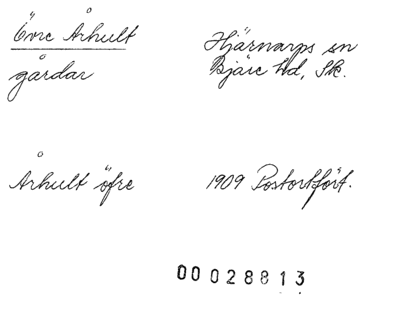 Övre Århult
gårdar
Hjärnarps sn
Bjäre hd, Sk.
Århult öfre
1909 Postortfört.
00 028813